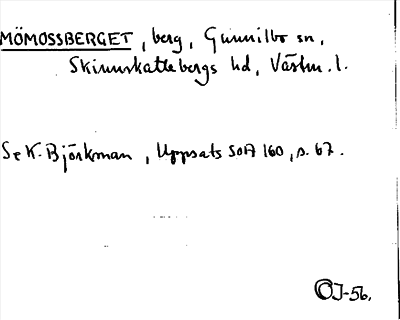 MÖMOSSBERGET, berg, Gunnilbo sn,
Skinnskattebergs hd, Västm. l.
Se K. Björkman, Uppsats SOA 160, s. 67.
OJ-56.